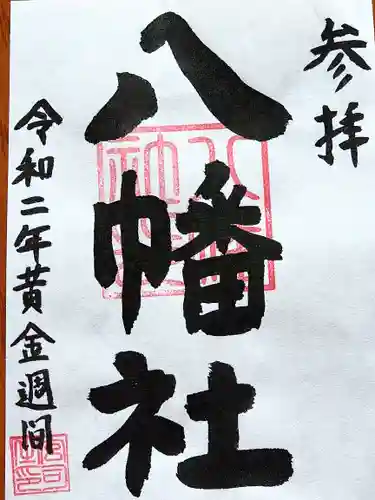 参拝
八幡社
令和二年黄金週間